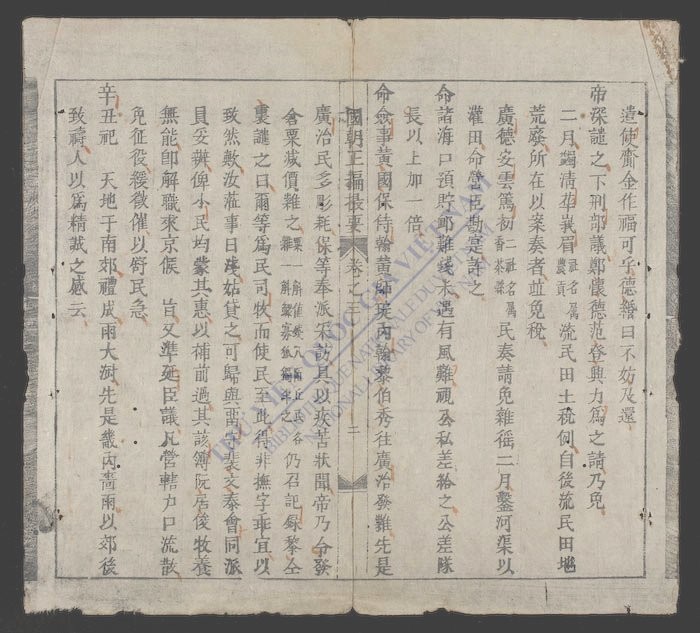 遣使賫金作福可乎德縉曰不妨及還
帝深譴之下刑部議鄭懷德范登興力爲之請乃免
二月蠲清華峩眉社名屬農貢流民田土稅例自後流民田地
荒廢所在以案奏者並免稅
廣德安雲爲初二社名屬香茶縣民奏請免雜徭二月鑿河渠以
灌田命營臣勘定許之
命諸海口預貯郵難錢米遇有風難視公私差給之公差隊
長以上加一倍
命僉事黃國保待翰黃師琰丙翰黎伯秀往廣治發難先是
國朝正編撮要 卷之三 二
廣治民多彫耗保等奉派采訪具以疾苦狀聞帝乃令發
倉粟減價難之仍召記錄黎全
裏譴之曰爾等爲民司牧而使民至此得非撫字乖宜以
致然歟汝蒞事日淺姑貸之可歸與留守裴文泰會同派
員妥辦俾小民均蒙其惠以補前過其該簿阮居俊牧養
無能卽解職來京候 旨又準延臣議凡營轄戶口流散
免征役緩徵催以舒民急
辛丑祀 天地于南郊禮成雨大澍先是畿內嗇雨以郊後
致禱人以爲精誠之感云
THƯ VIỆN QUỐC GIA VIỆT NAM
BIBLIOTHEQUE NATIONALE DU VIETNAM
NATIONAL LIBRARY OF VIETNAM